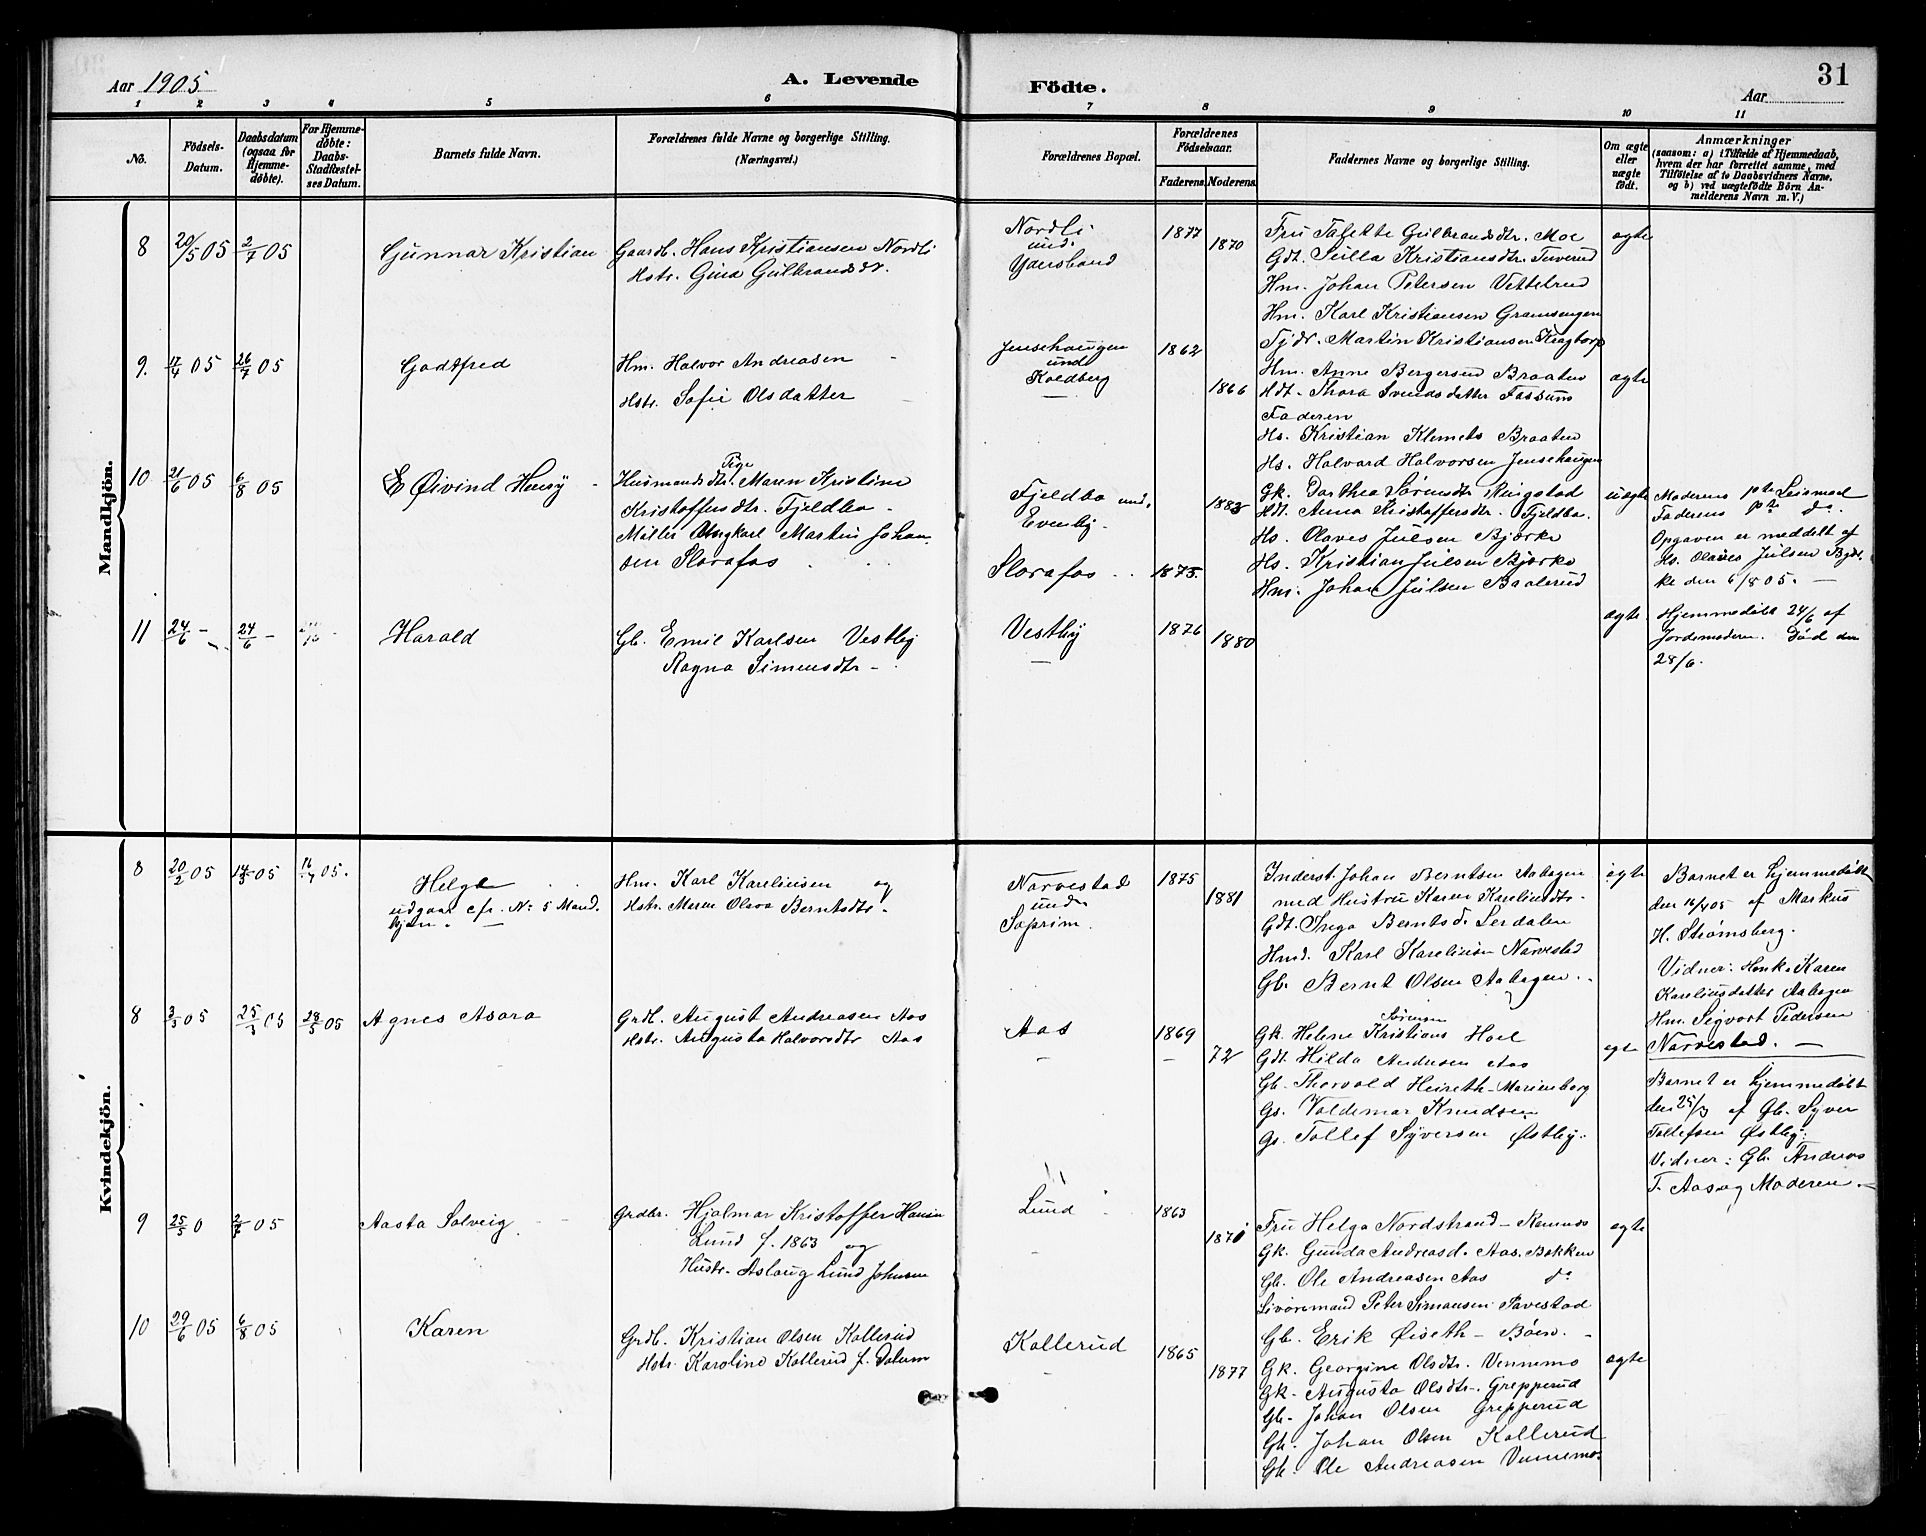 Aar 1905
A. Levende
Födte.
31
Aar
1 2 3 4 5 6 7 8 9 10 11
No.
Födsels-
Datum.
Daabsdatum
(ogsaa for
Hjemme-
døbte).
For Hjemme-
døbte:
Daabs-
Stadfæstel-
ses Datum.
Barnets fulde Navn.
Forældrenes fulde Navne og borgerlige Stilling.
(Næringsvei.)
Forældrenes Bopæl.
Forældrenes
Födselsaar.
Faderens. Moderens.
Faddernes Navne og borgerlige Stilling.
Om ægte
eller
uægte
födt.
Anmærkninger
(saasom: a) i Tilfælde af Hjemmedaab,
hvem der har forrettet samme, med
Tilföielse af to Daabsvidners Navne,
og b) ved uægtefödte Börn An-
melderens Navn m. V.)
Mandkjön.
8 20/5 05 2/7 05 Gunnar Kristian
Gaardb. Hans Kristiansen Nordli
Hstr. Gina Gulbrandsdr.
Nordli
und.
1877 1870
Fru Gulbrandsdtr. Moe
Gdt. Kristiansdtr.
Hm. Johan Petersen Vettelrud
Hm. Karl Kristiansen Gramengen
Martin Kristiansen
ægte
9. 17/4 05 26/7 05 Godtfred
Hm. Halvor Andreasen
Hstr. Sofie Olsdatter
Jensehaugen
und
Koldberg
1862 1866
Hm. Anne Bergersen Braaten
Hdt. Thora Svendsdatter Fossum
Faderen
Hs. Kristian Klemets Braaten
Hs. Halvard Halvorsen Jensehaugen
ægte
10 21/6 05 6/8 05 Øivind Henry
Pige
Husmandsdtr. Maren Kristine
Kristoffersdtr. Fjeldbo.
Ungkarl Martin Johan
sen Slorafos
Fjeldbo und.
Evenby.
Slorafos
1875. 1883
Gk. Dorthea Sørensdtr Ringstad
Hdt. Anna Kristoffersdtr. Fjeldbo.
Hs. Olaves Julsen Bjørke
Hs. Kristian Julsen Bjørke
Hm. Johan Julsen Baalerud
uægte
Moderens 1ste Leiermaal
Faderens do.
Opgaven er meddelt af
Hs. Olaves Julsen Bjør-
ke den 6/8 05.
11 24/6 24/6 Harald
Gb. Emil Karlsen Vestby
Ragna Simensdtr
Vestby
1876 1880
ægte.
Hjemmedøbt 24/6 af
Jordemoderen. Død den
28/6.
Kvindekjön.
8 20/2 05 05 16/4 05. Helge
udgaar cfr. No 5 Mand.
kjøn.
Hm. Karl Kareliusen og
Hstr. Maren Olava Berntsdtr.
Narvestad
und.
Soprim.
1875 1881
Inderst. Johan Berntsen Aabogen
med Hustru Karen Kareliusdtr.
Gdt. Inga Berntsd. Lerdalen
Hmd. Karl Kareliusen Narvestad
Gb. Bernt Olsen Aabogen.
ægte
Barnet er hjemmedøbt
den 16/4 05 af Markus
H. Strømsberg.
Vidner: Karen
Kareliusdatter Aabogen
Hm. Sigvart Pedersen
Narvestad.
8 3/3 05 25/3 05 28/5 05 Agnes Asora
Grdb. August Andreasen Aas
Hstr. Augusta Halvorsdtr Aas
Aas
1869 72
Sørensen
Gk. Helene Kristians Hoel
Gdt. Hilda Andersen Aas
Gb. Thorvald Heireth-Marienborg
Gs. Valdemar Knudsen
Gs. Tollef Syversen Østby.
ægte
Barnet er hjemmedøbt
den 25/3 af Gb. Syver
Tollefsen Østby:
Vidner: Gb. Andreas
T. Aas og Moderen.
9 25/5 0 05 Aasta Solveig
Grdbr. Hjalmar Kristoffer Hansen
Lund f. 1863 og
Hustr. Aslaug Lund Johnsen
Lund
1863 1871
Fru Helga Nordstrand-Ramnæs
Gk. Gunda Andreasd. Aas-Bakken
Gb. Ole Andreasen Aas do
Peter Simonsen Tavestad
Gb. Erik Øiseth - Bøen.
ægte
10 29/6 05 6/8 05 Karen
Grdb. Kristian Olsen Kollerud
Hstr. Karoline Kollerud f. Dalum
Kollerud
1865 1877
Gk. Georgine Olsdtr. Vennemo
Gk. Augusta Olsdtr. Grepperud
Gb. Johan Olsen Grepperud
Gb. Johan Olsen Kollerud
Gb. Ole Andreasen Vennemo.
ægte